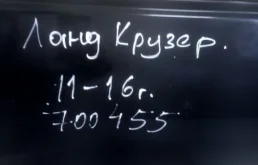 Ланд Крузер.
11-16г.
700455